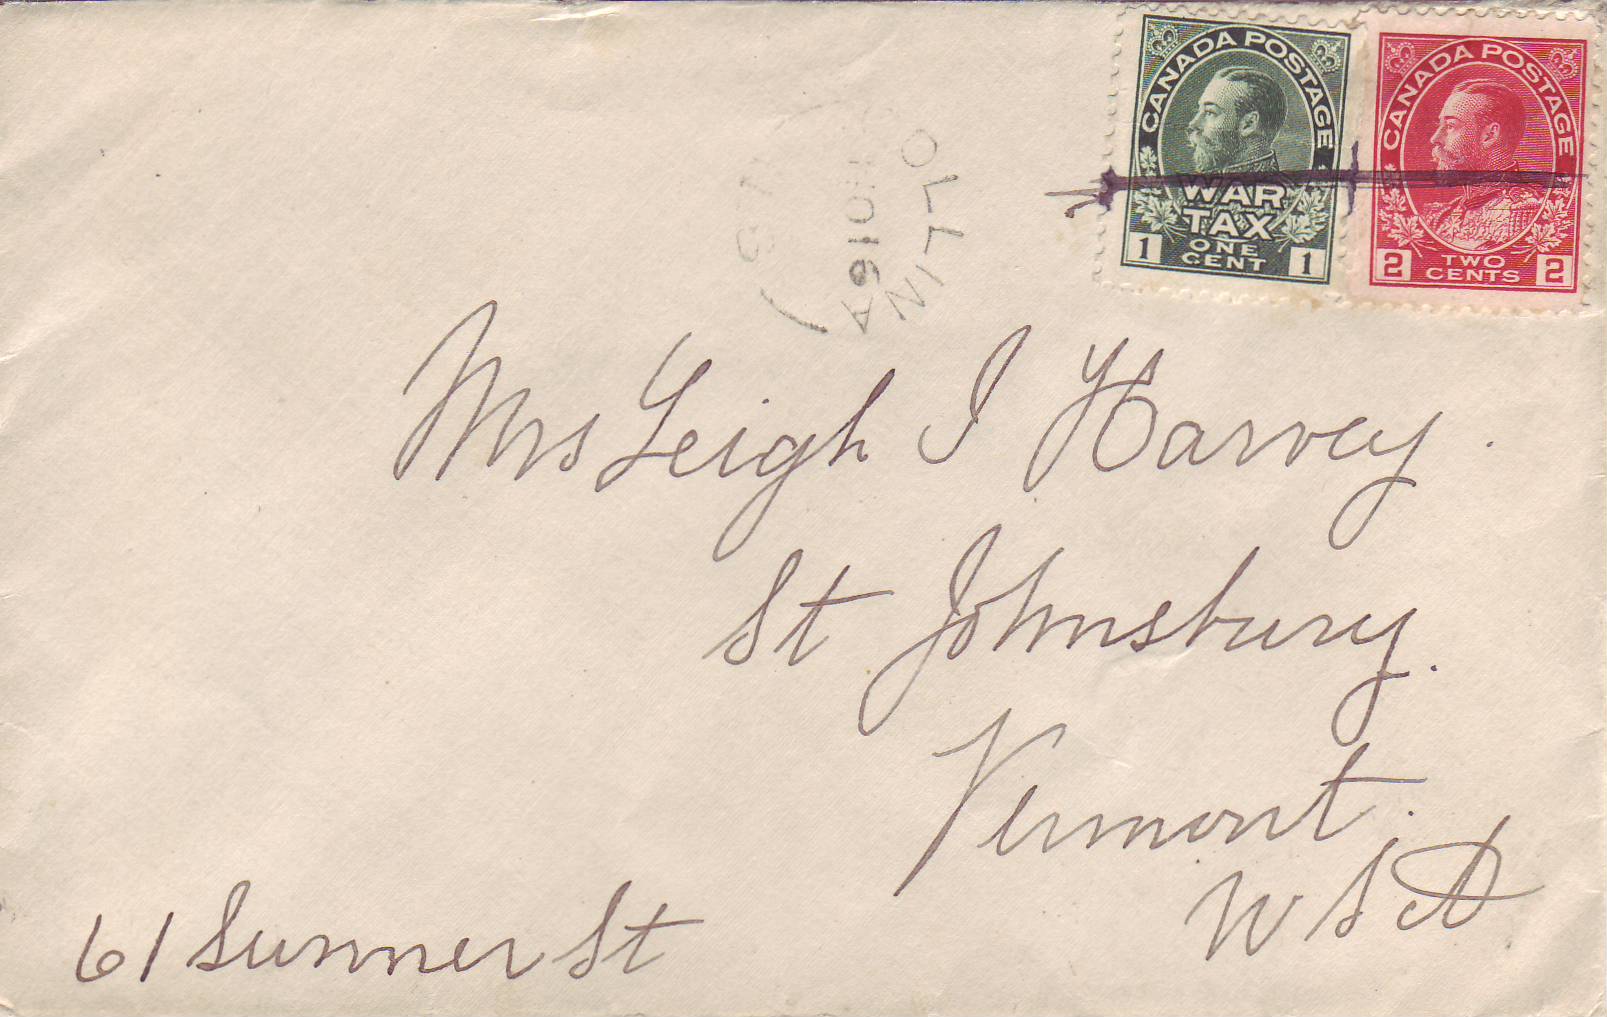 CANADA POSTAGE
WAR
TAX
1 ONE CENT 1
CANADA POSTAGE
2 TWO CENTS 2
OLLINA
16
Mrs Leigh I Harvey.
St Johnsbury.
Vermont.
USA
61 Sumner St